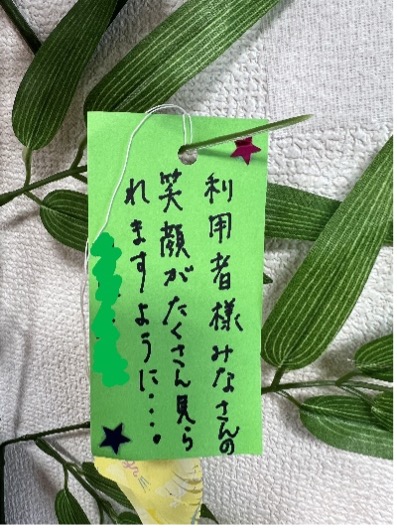 利用者様みなさんの
笑顔がたくさん見ら
れますように・・・。